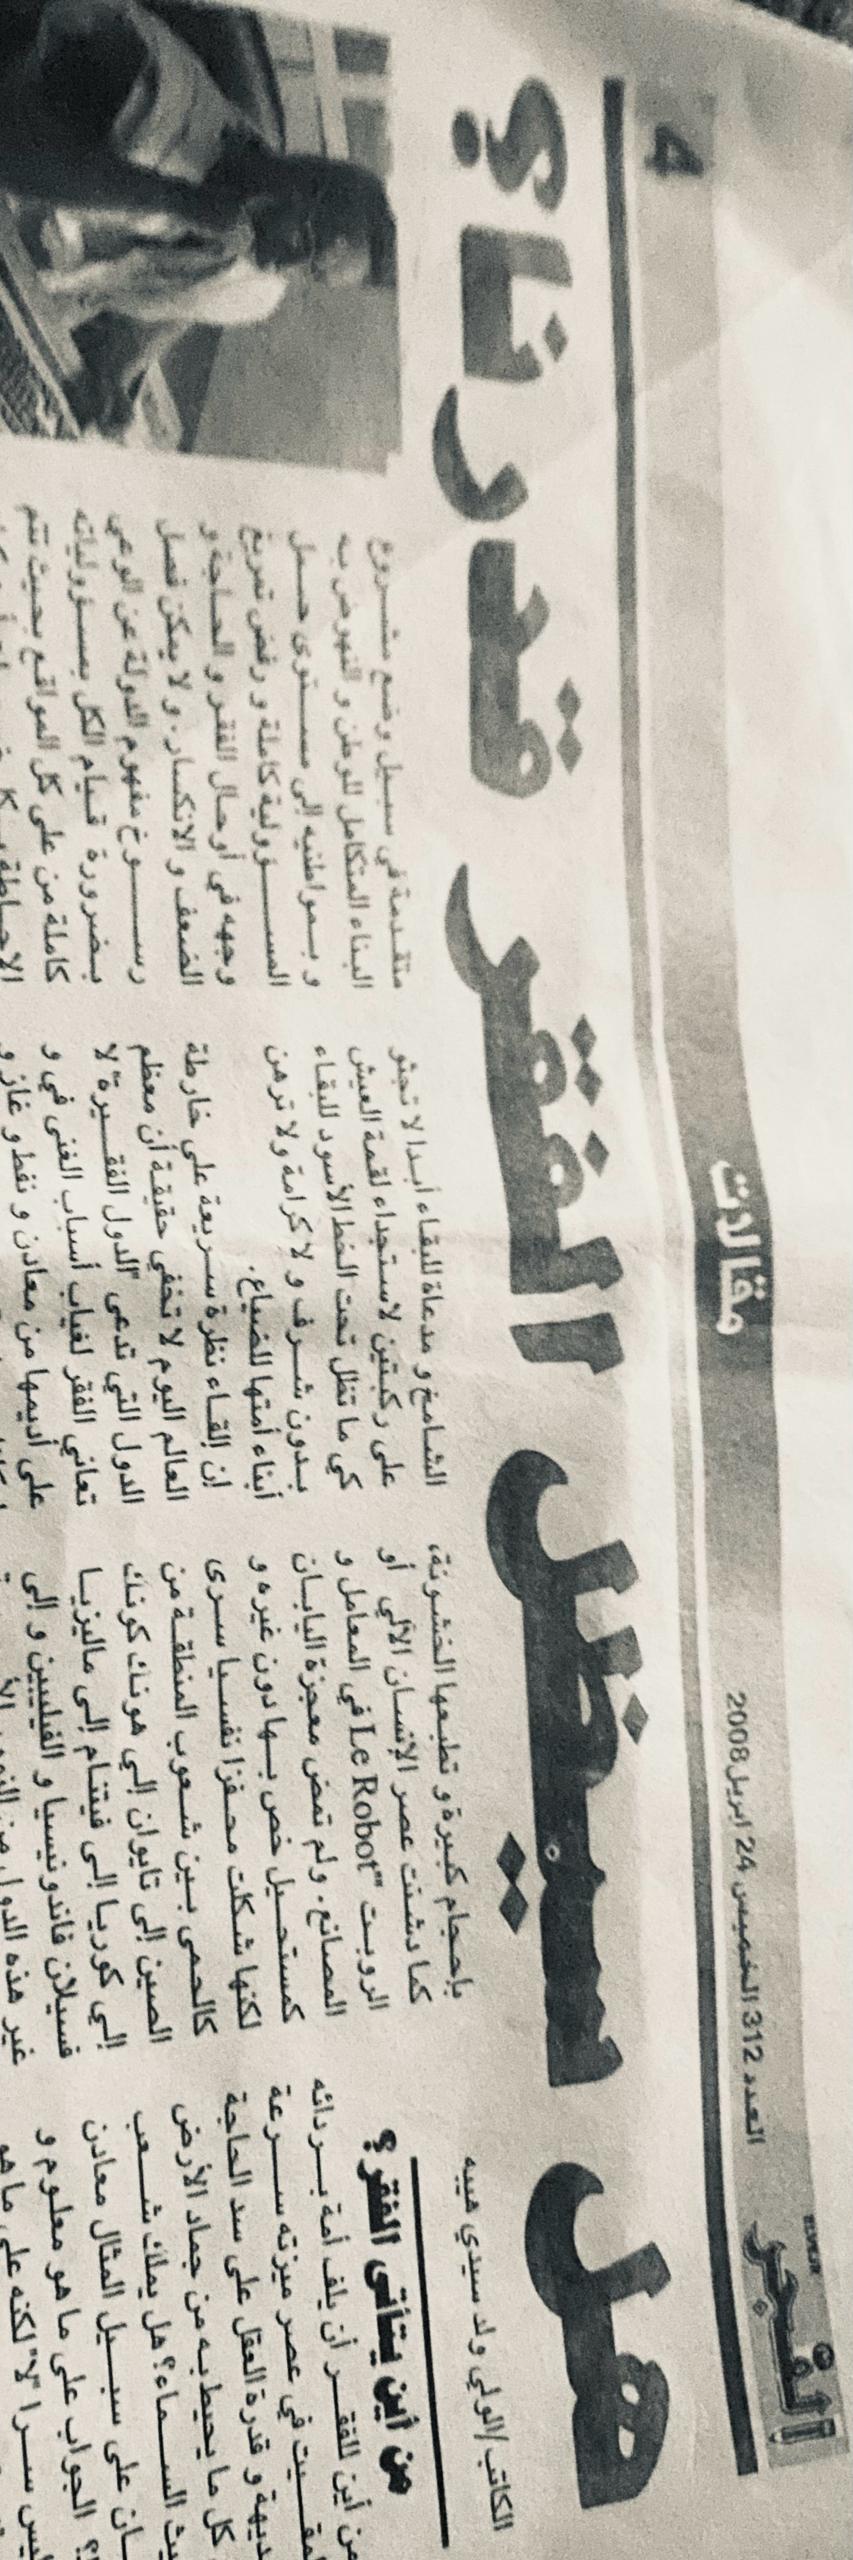 الفجر
العدد 312 الخميس 24 ابريل 2008
مقالات
4
هل سيظل الفقر قدرنا؟
الكاتب/الولي ولد سيدي هيبه
من أين يتأتى الفقر؟
من أين للفقر أن يلف أمة بردائه
في عصر ميزته سرعة
البديهة و قدرة العقل على سد الحاجة
كل ما يحيط به من جماد الأرض
السماء؟ هل يملك شعب
على سبيل المثال معادن
الجواب على ما هو معلوم و
ليس سرا "لا" لكنه على ما هو
بإحجام كبيرة و تطبعها الخشونة،
كما دشنت عصر الإنسان الآلي أو
الروبت "Le Robot" في المعامل و
المصانع. ولم تمض معجزة اليابان
كمستحيل خص بها دون غيره و
لكنها شكلت محفزا نفسيا سرى
كالحمى بين شعوب المنطقة من
الصين إلى تايوان إلي هونك كونك
إلي كوريا إلى فيتنام إلى ماليزيا
فسيلان فاندونيسيا و الفيليبين و إلى
غير هذه الدول من النمور
الشامخ و مدعاة للبقاء أبدا لا تجثو
على ركبتين لاستجداء لقمة العيش
كي ما تظل تحت الخط الأسود للبقاء
بدون شرف و لا كرامة ولا ترهن
أبناء أمتها للضياع.
إن إلقاء نظرة سريعة على خارطة
العالم اليوم لا تخفي حقيقة أن معظم
الدول التي تدعى "الدول الفقيرة" لا
تعاني الفقر لغياب أسباب الغنى في و
على أديمها من معادن و نفط و غاز و
متقدمة في سبيل وضع مشروع
البناء المتكامل للوطن و النهوض به
و بمواطنيه إلى مستوى حمل
المسؤولية كاملة و رفض تمريغ
وجهه في أوحال الفقر و الحاجة و
الضعف و الانكسار. و لا يمكن فصل
رسوخ مفهوم الدولة عن الوعي
بضرورة قيام الكل بمسؤولياته
كاملة من على كل المواقع بحيث تتم